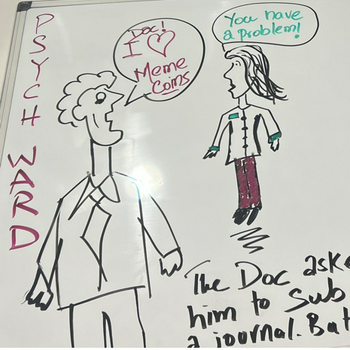 PSYCH WARD
Doc!
I ♡
Meme
Coins
You have
a problem!
The Doc aske
him to Sub
a journal. Bat